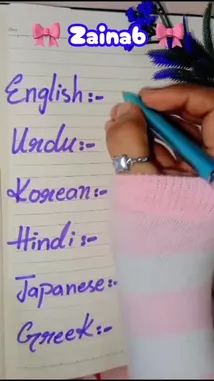 🎀 Zainab 🎀
English:-
Urdu:-
Korean:-
Hindi:-
Japanese:-
Greek:-